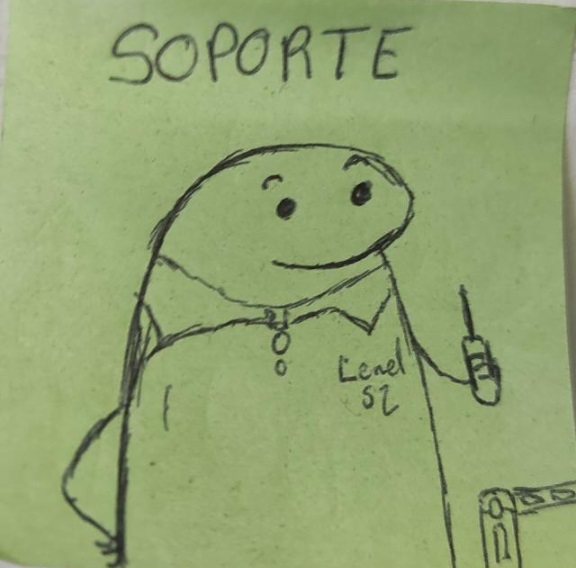 SOPORTE
Lenel
S2